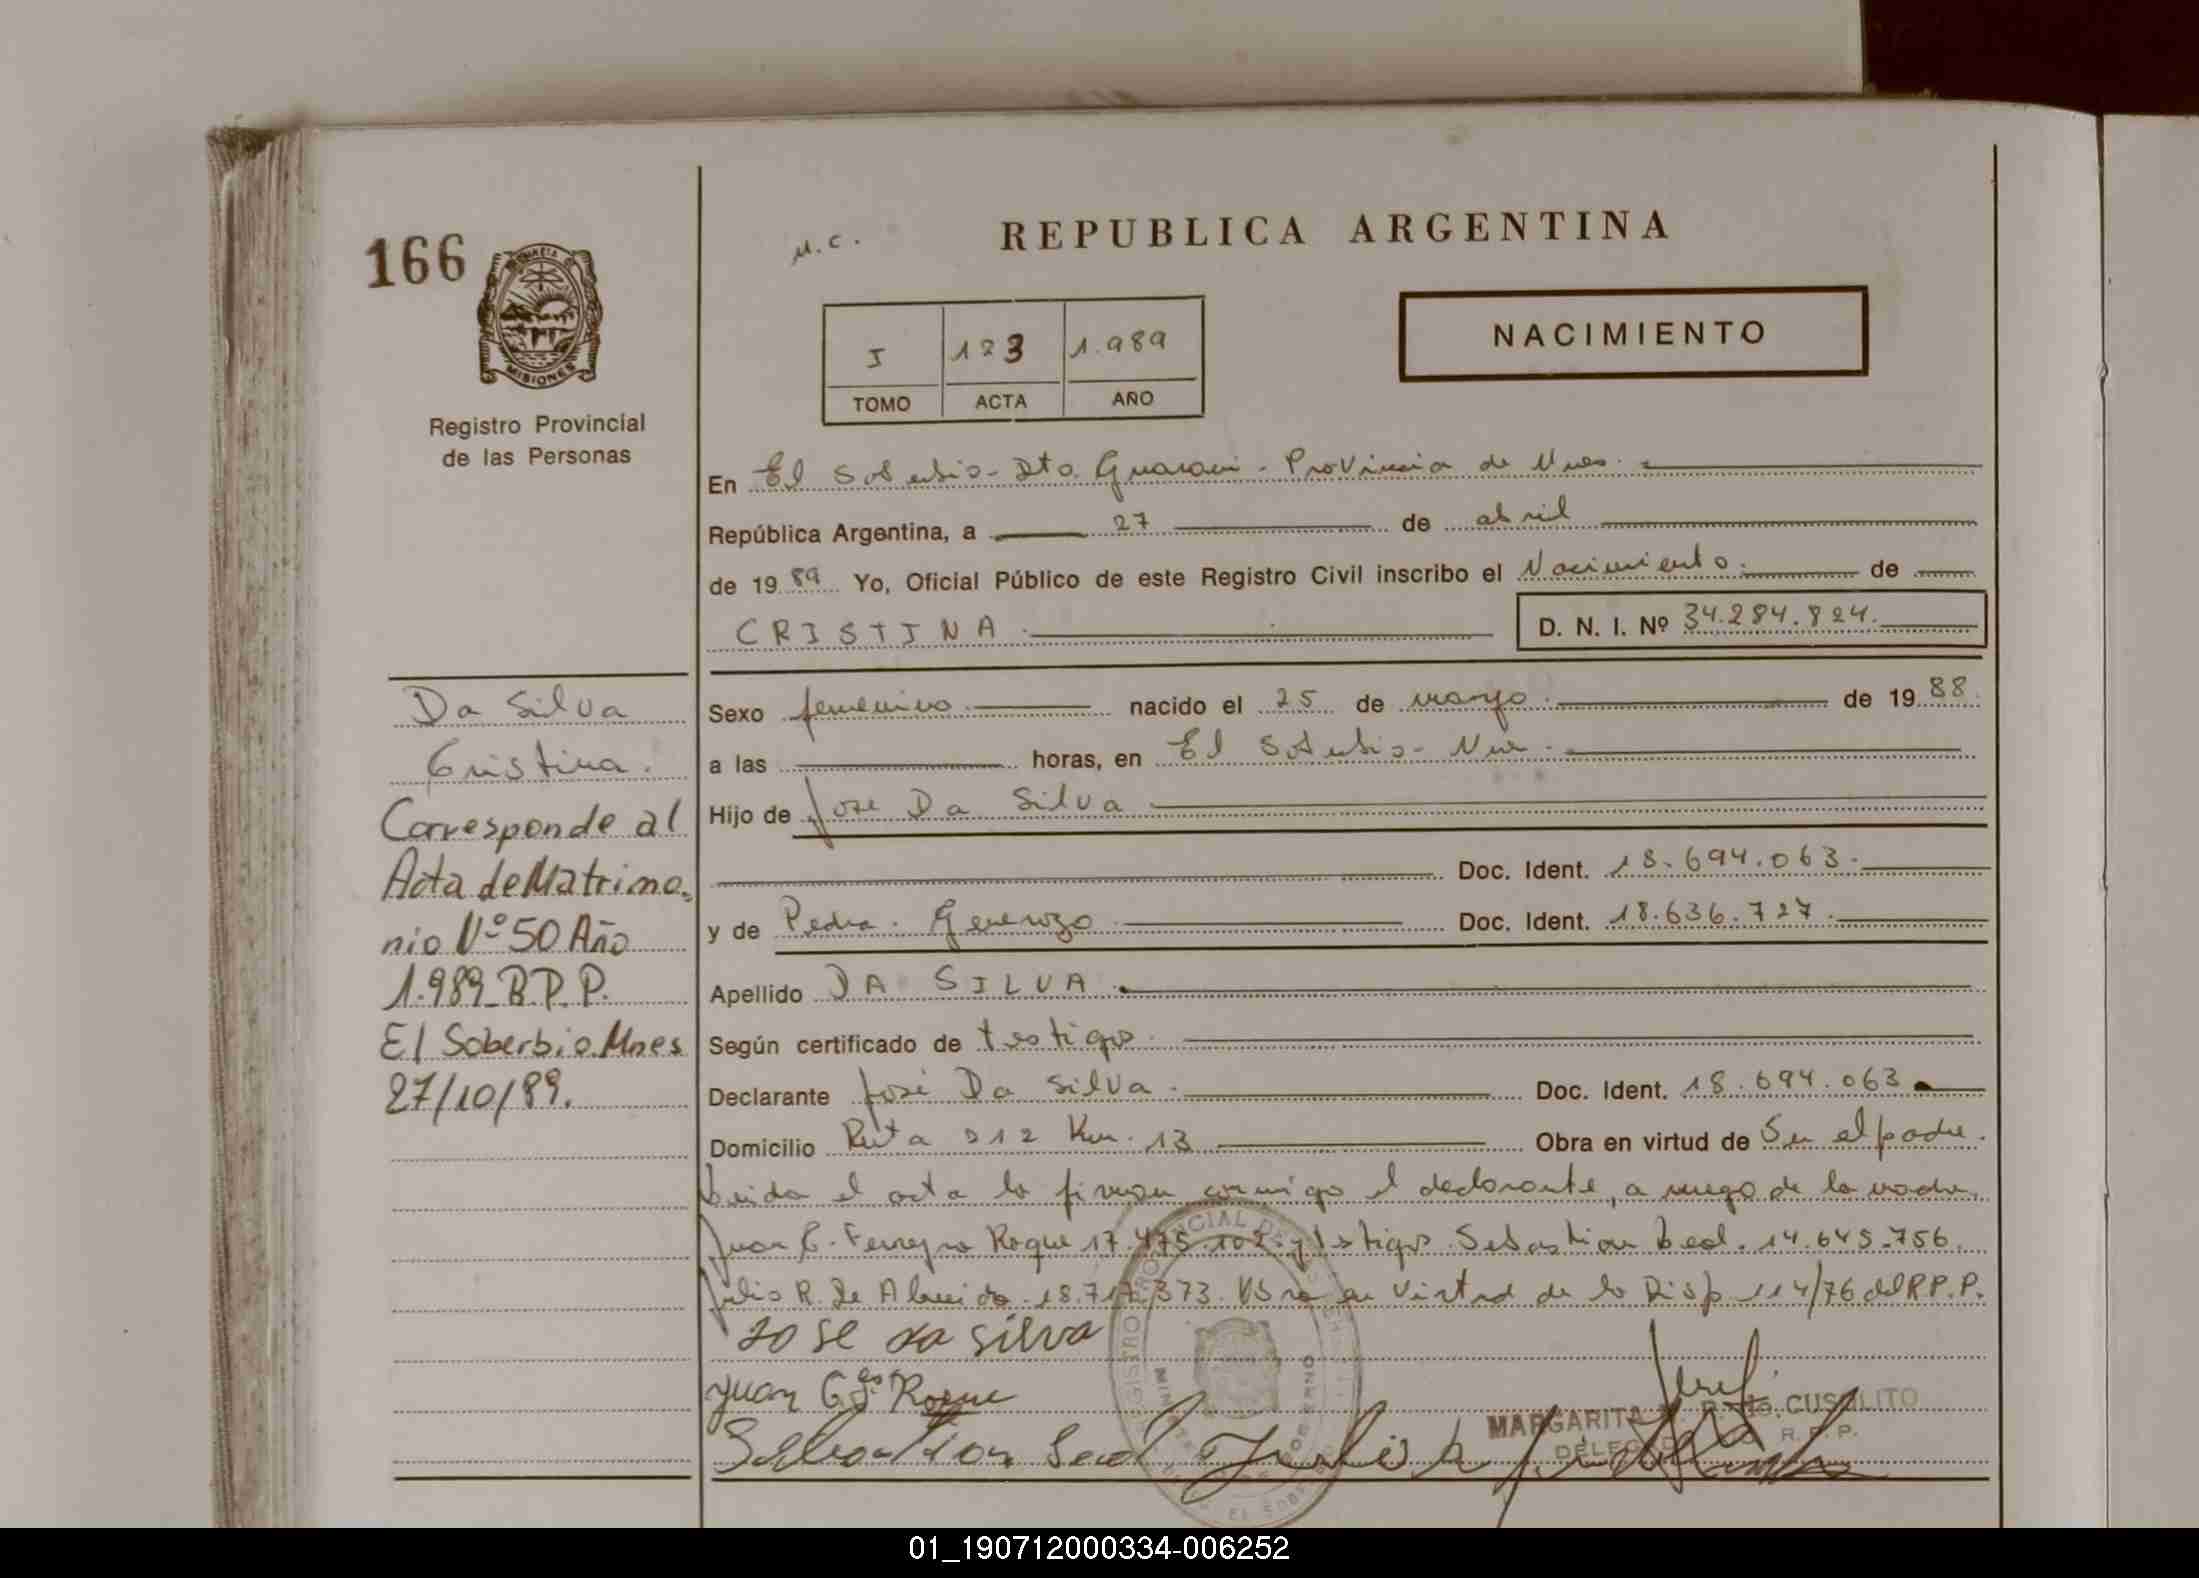 REPUBLICA ARGENTINA
166
MISIONES
Registro Provincial
de las Personas
I 123 1.989
TOMO ACTA AÑO
NACIMIENTO
En El Soberbio - Dto. Guarani - Provincia de Mnes.
República Argentina, a 27 de abril
de 1989 Yo, Oficial Público de este Registro Civil inscribo el Nacimiento de
CRISTINA
D. N. I. Nº 34.284.824.
Sexo femenino nacido el 25 de marzo de 1988.
a las horas, en El Soberbio - Mnes.
Hijo de José Da Silva
Doc. Ident. 18.694.063.
y de Pedra Generozo Doc. Ident. 18.636.727.
Apellido DA SILVA
Según certificado de testigos
Declarante José Da Silva Doc. Ident. 18.694.063
Domicilio Ruta 212 Km. 13 Obra en virtud de Ser el padre.
Leida el acta la firman conmigo el declarante, a ruego de la madre,
Juan C. Ferreyra Roque 17.475.102 y testigos Sebastian Leal. 14.645.756.
Julio R. De Almeida. 18.717.373. en virtud de la Disp 114/76 del R.P.P.
Jose da silva
Juan Roque
Sebastion
Julio
MARGARITA CUSOLITO
R. P. P.
Da Silva
Cristina.
Corresponde al
Acta de Matrimo
nio Nº 50 Año
1.989 R.P.P.
El Soberbio Mnes
27/10/89.
01_190712000334-006252